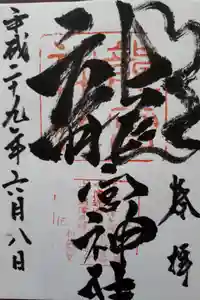 奉拝
龍宮神社
平成二十九年六月八日